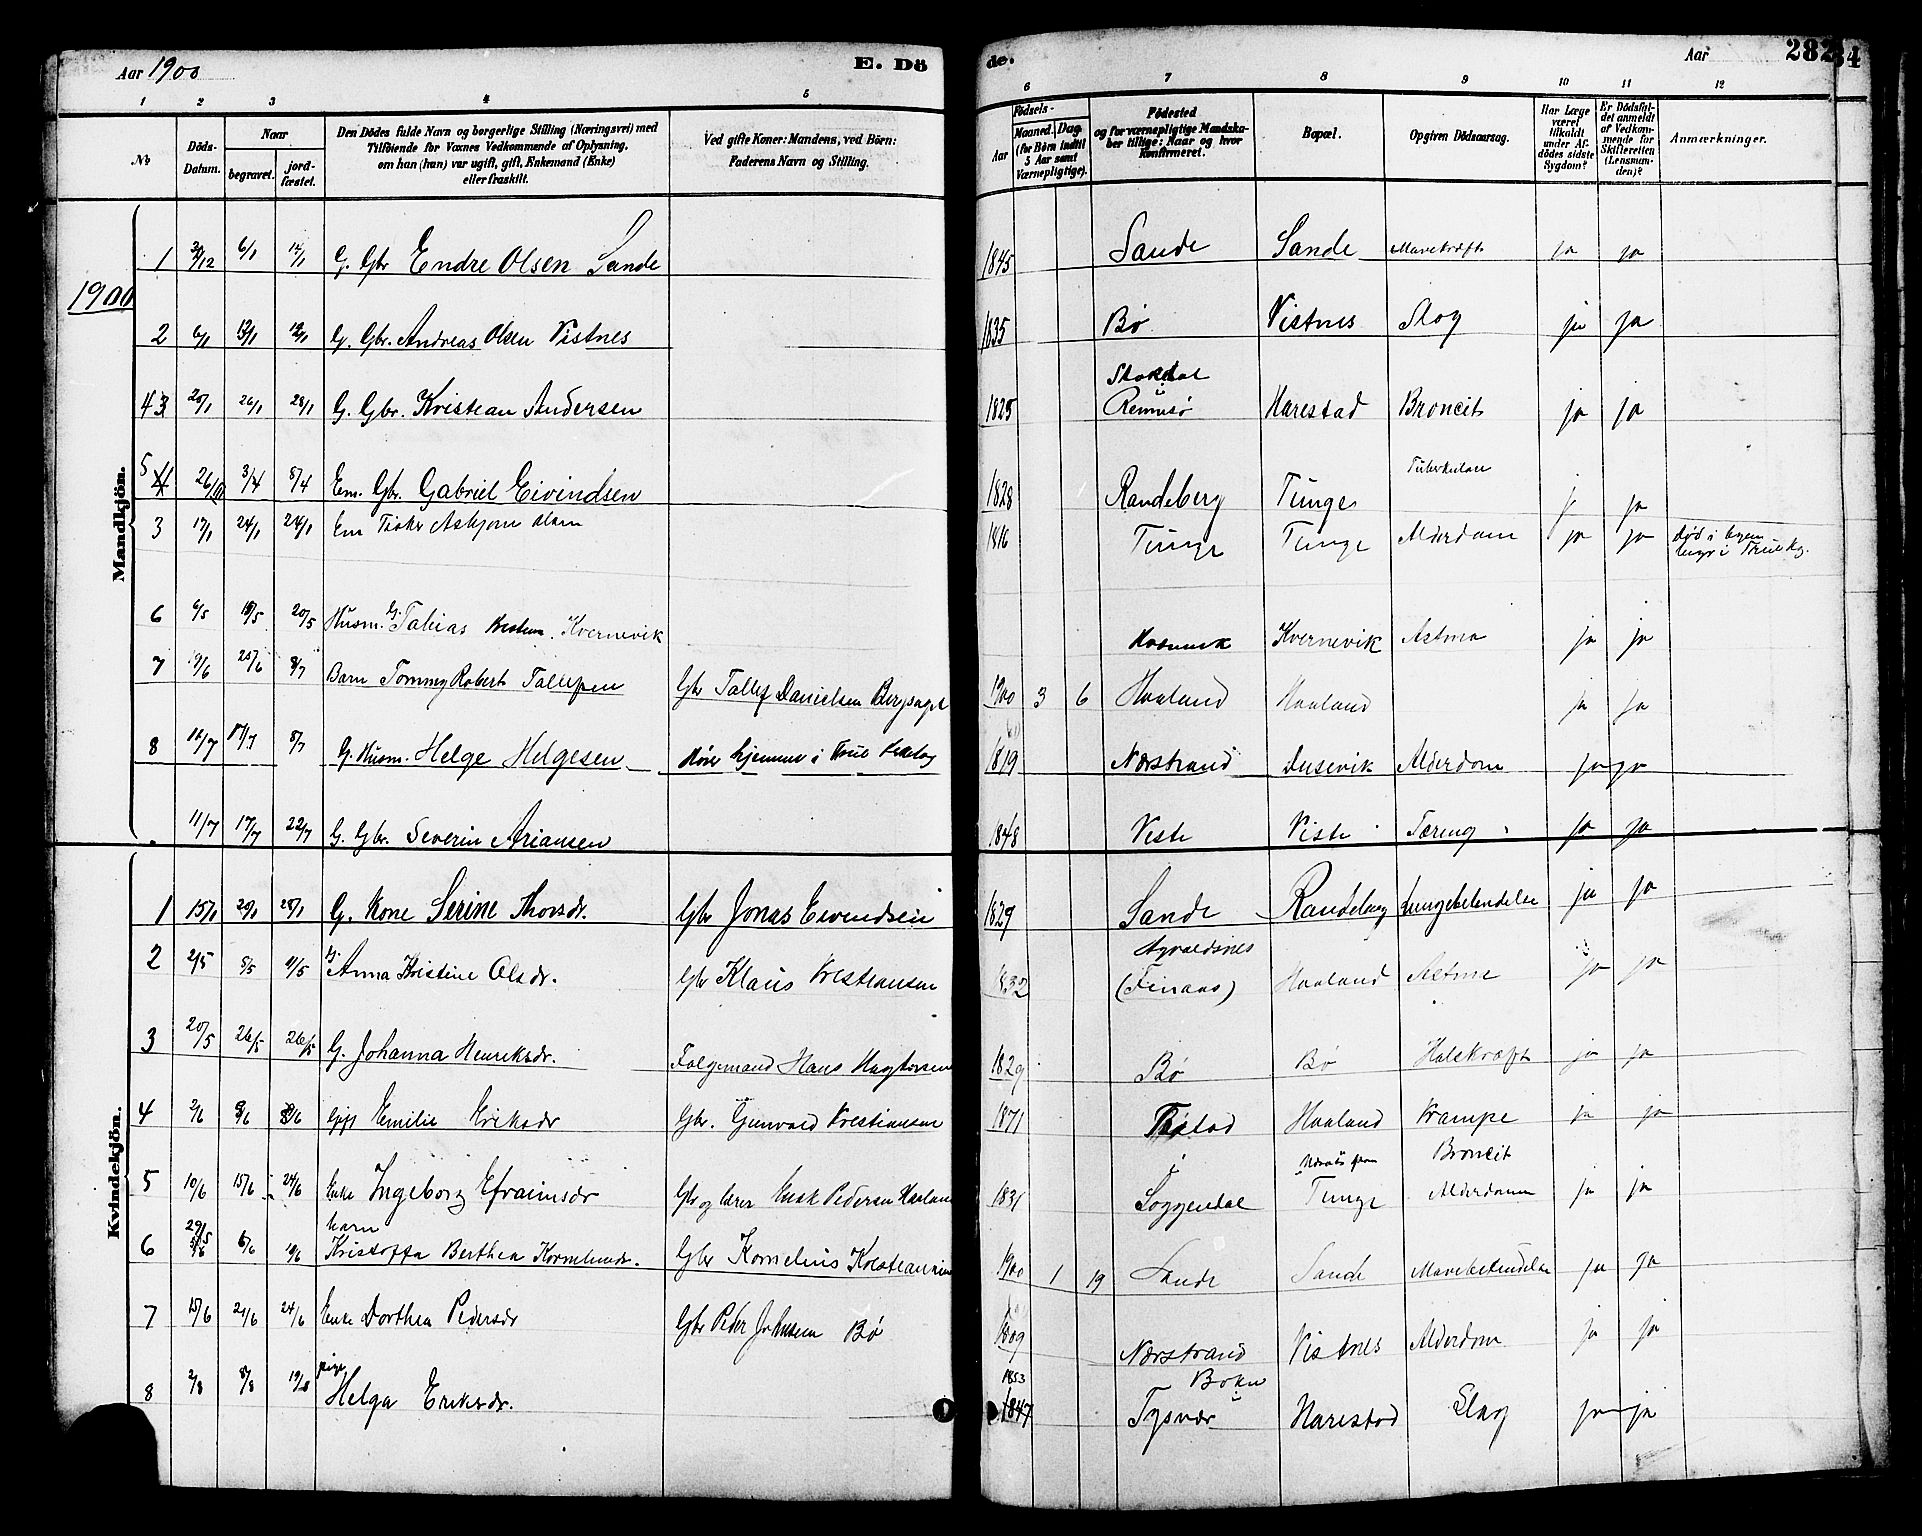 Aar 1900
E. Dö
de.
Aar
282
34
1 2 3 4 5 6 7 8 9 10 11 12
No
Döds-Datum.
Naar
begravet.
jord-fæstet.
Den Dödes fulde Navn og borgerlige Stilling (Næringsvei) med
Tilföiende for Voxnes Vedkommende af Oplysning.
om han (hun) var ugift, gift, Enkemand (Enke)
eller fraskilt.
Ved gifte Koner: Mandens, ved Börn:
Faderens Navn og Stilling.
Födsels-
Aar
Maaned. Dag.
(for Börn indtil
5 Aar samt
Værnepligtige).
Födested
og for værnepligtige Mandska-
ber tillige: Naar og hvor
konfirmeret.
Bopæl.
Opgiven Dödsaarsag.
Har Læge
været
tilkaldt
under Af-
dödes sidste
Sygdom?
Er Dödsfal-
det anmeldt
af Vedkom-
mende for
Skifteretten
(Lensman-
den)?
Anmærkninger.
1900
Mandkjön.
1 30/12 6/1 14/1 G. Gbr Endre Olsen Sande 1845 Sande Sande Mavekræft ja ja
2 6/1 13/1 G. Gbr. Andreas Olsen Vistnes 1835 Bø Vistnes Slag ja ja
4 20/1 26/1 28/1 G. Gbr. Kristian Andersen 1825 Harestad Broncit ja ja
5 3/4 8/4 Em. Gbr. Gabriel Eivindsen 1828 Randeberg Tunge Tuberkulose j ja
3 17/1 24/1 24/1 Em 1816 Tunge Tunge Alderdom ja ja død i byen
6 6/5 20/5 Husm. Tobias Kvernevik Kvernevik Astma ja ja
7 19/6 25/6 8/7 Barn Tommy Robert Tallefsen Gbr Tallef Danielsen Bergsagel 1900 3 6 Haaland Haaland ja ja
8 12/7 17/7 8/7 G. Husm. Helge Helgesen hjemme i 1819 Nærstrand Dusevik Alderdom ja ja
11/7 17/7 22/7 G. Gbr. Severin Ariansen 1848 Viste Viste Tæring ja ja
Kvindekjön.
1 15/1 20/1 28/1 G. Kone Serine Thorsdr. Gbr Jonas Eivendsen 1829 Sande Randeberg Lungebetendelse ja ja
2 2/5 8/5 11/5 G. Anna Kristine Olsdr. Gbr Klaus Kristiansen 1832 Avaldsnes (Finaas) Haaland Astma ja ja
3 20/5 26/5 26/5 G. Johanna Henriksdr. Folgemand Hans 1829 Bø Bø Halskræft ja ja
4 2/6 8/6 Gift Emilie Eriksdr Gbr. Gunvald Kristiansen 1871 Haaland Krampe ja ja
5 10/6 15/6 24/6 Enke Ingeborg Efraimsdr Gbr og lærer Pedersen Haaland 1831 Soggendal Tunge Broncit Alderdom ja ja
6 29/5 6/6 10/6 barn Kristoffa Berthea Gbr Kornelius Kristiansen 1900 1 19 Sande Sande Mavebetendelse ja ja
7 15/6 21/6 24/6 Enke Dorthea Pedersdr Gbr Peder Johnsen Bø 1809 Nærstrand Vistnes Alderdom ja ja
8 2/8 8/8 19/8 pige Helga Eriksdr. 1853 1847 Bokn Tysvær Harestad Slag ja ja